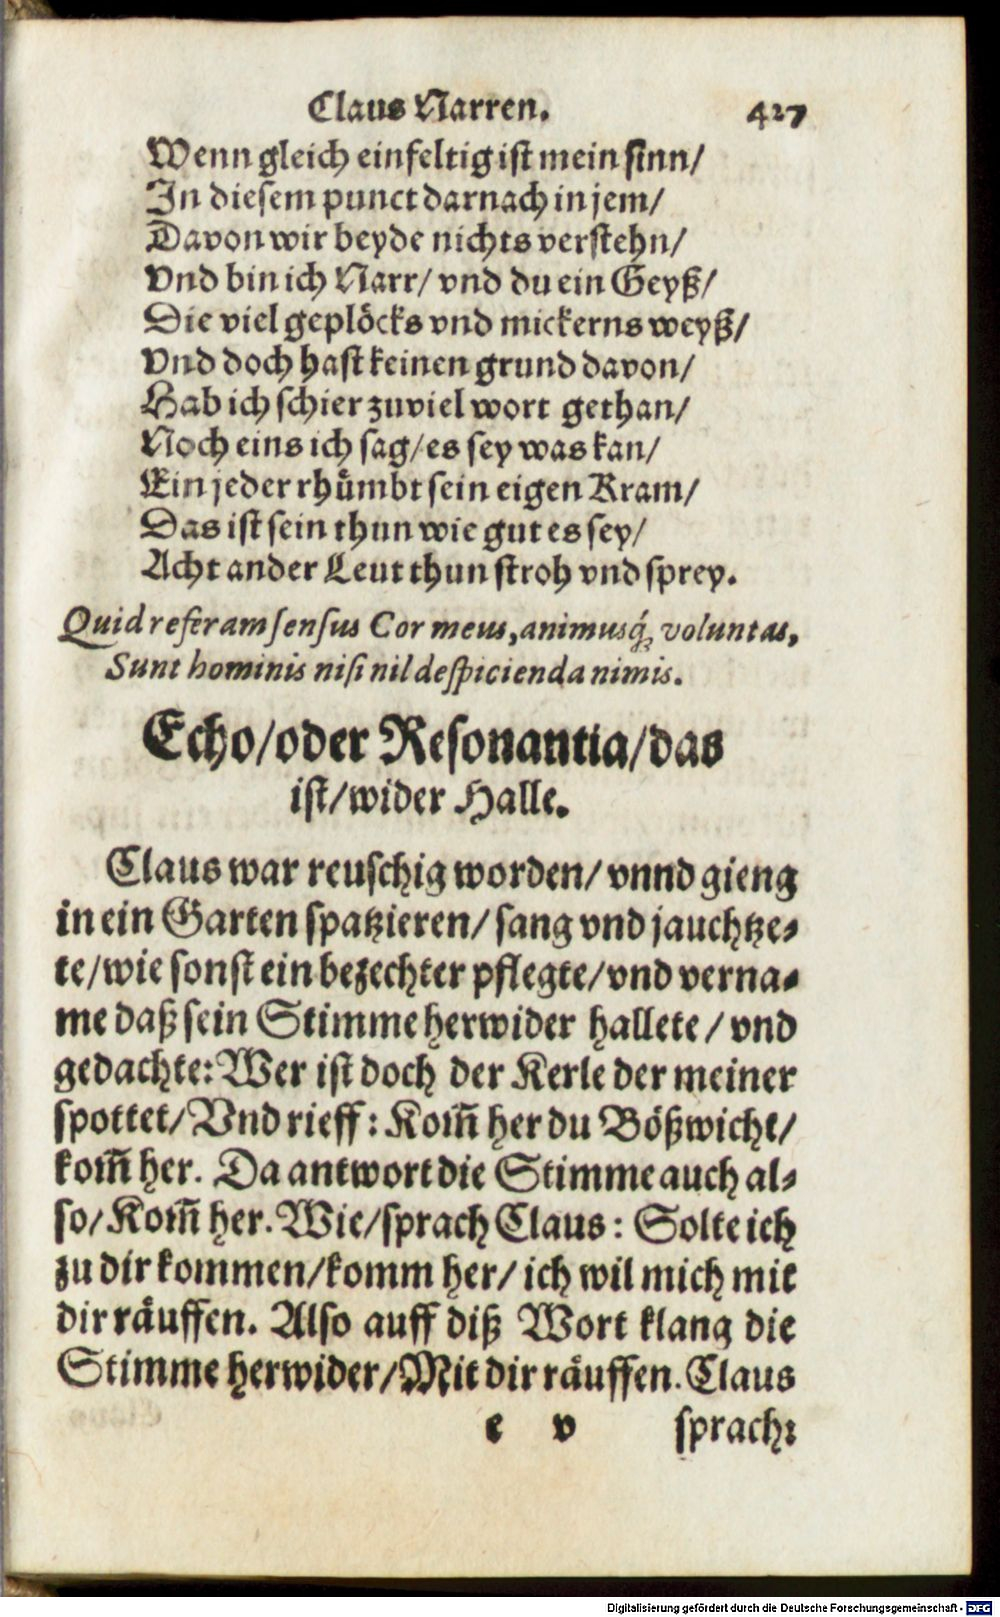 Claus Narren. 427
Wenn gleich einfeltig ist mein sinn/
In diesem punct darnach in jem/
Davon wir beyde nichts verstehn/
Vnd bin ich Narr/ vnd du ein Geyß/
Die viel geplöcks vnd mickerns weyß/
Vnd doch hast keinen grund davon/
Hab ich schier zuviel wort gethan/
Noch eins ich sag/ es sey was kan/
Ein jeder rhuͤmbt sein eigen Kram/
Das ist sein thun wie gut es sey/
Acht ander Leut thun stroh vnd sprey.
Quid referam sensus Cor meus, animusq́; voluntas,
Sunt hominis nisi nil despicienda nimis.
Echo/oder Resonantia/das
ist/wider Halle.
Claus war reuschig worden/ vnnd gieng
in ein Garten spatzieren/ sang vnd jauchtze-
te/wie sonst ein bezechter pflegte/vnd verna-
me daß sein Stimme herwider hallete / vnd
gedachte: Wer ist doch der Kerle der meiner
spottet/ Vnd rieff: Kom̃ her du Bößwicht/
kom̃ her. Da antwort die Stimme auch al-
so/ Kom̃ her. Wie/sprach Claus: Solte ich
zu dir kommen/komm her/ ich wil mich mit
dir raͤuffen. Also auff diß Wort klang die
Stimme herwider/Mit dir raͤuffen. Claus
e v sprach:
Digitalisierung gefördert durch die Deutsche Forschungsgemeinschaft - DFG